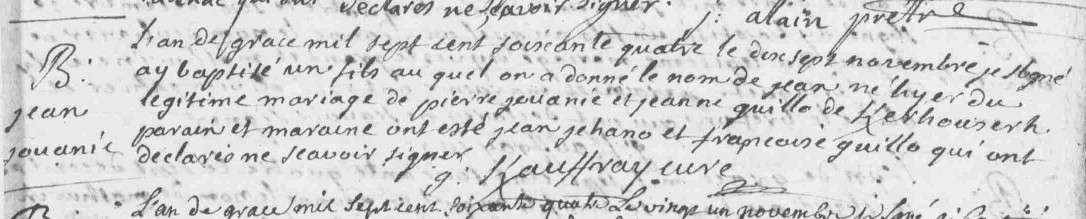 declarés ne scavoir signer. j: alain prettre
B: jean jouanic
L'an de grace mil sept cent soixante quatre le dix sept novembre je sōgné
ay baptisé un fils au quel on a donné le nom de jean né hyer du
legitime mariage de pierre jouanic et jeanne quillo de Kerhouserh.
parain et maraine ont esté jean jehano et francoise quillo qui ont
declarés ne scavoir signer
g. Kauffray curé
L'an de grace mil sept cent soixante quatre Le vingt un novembre